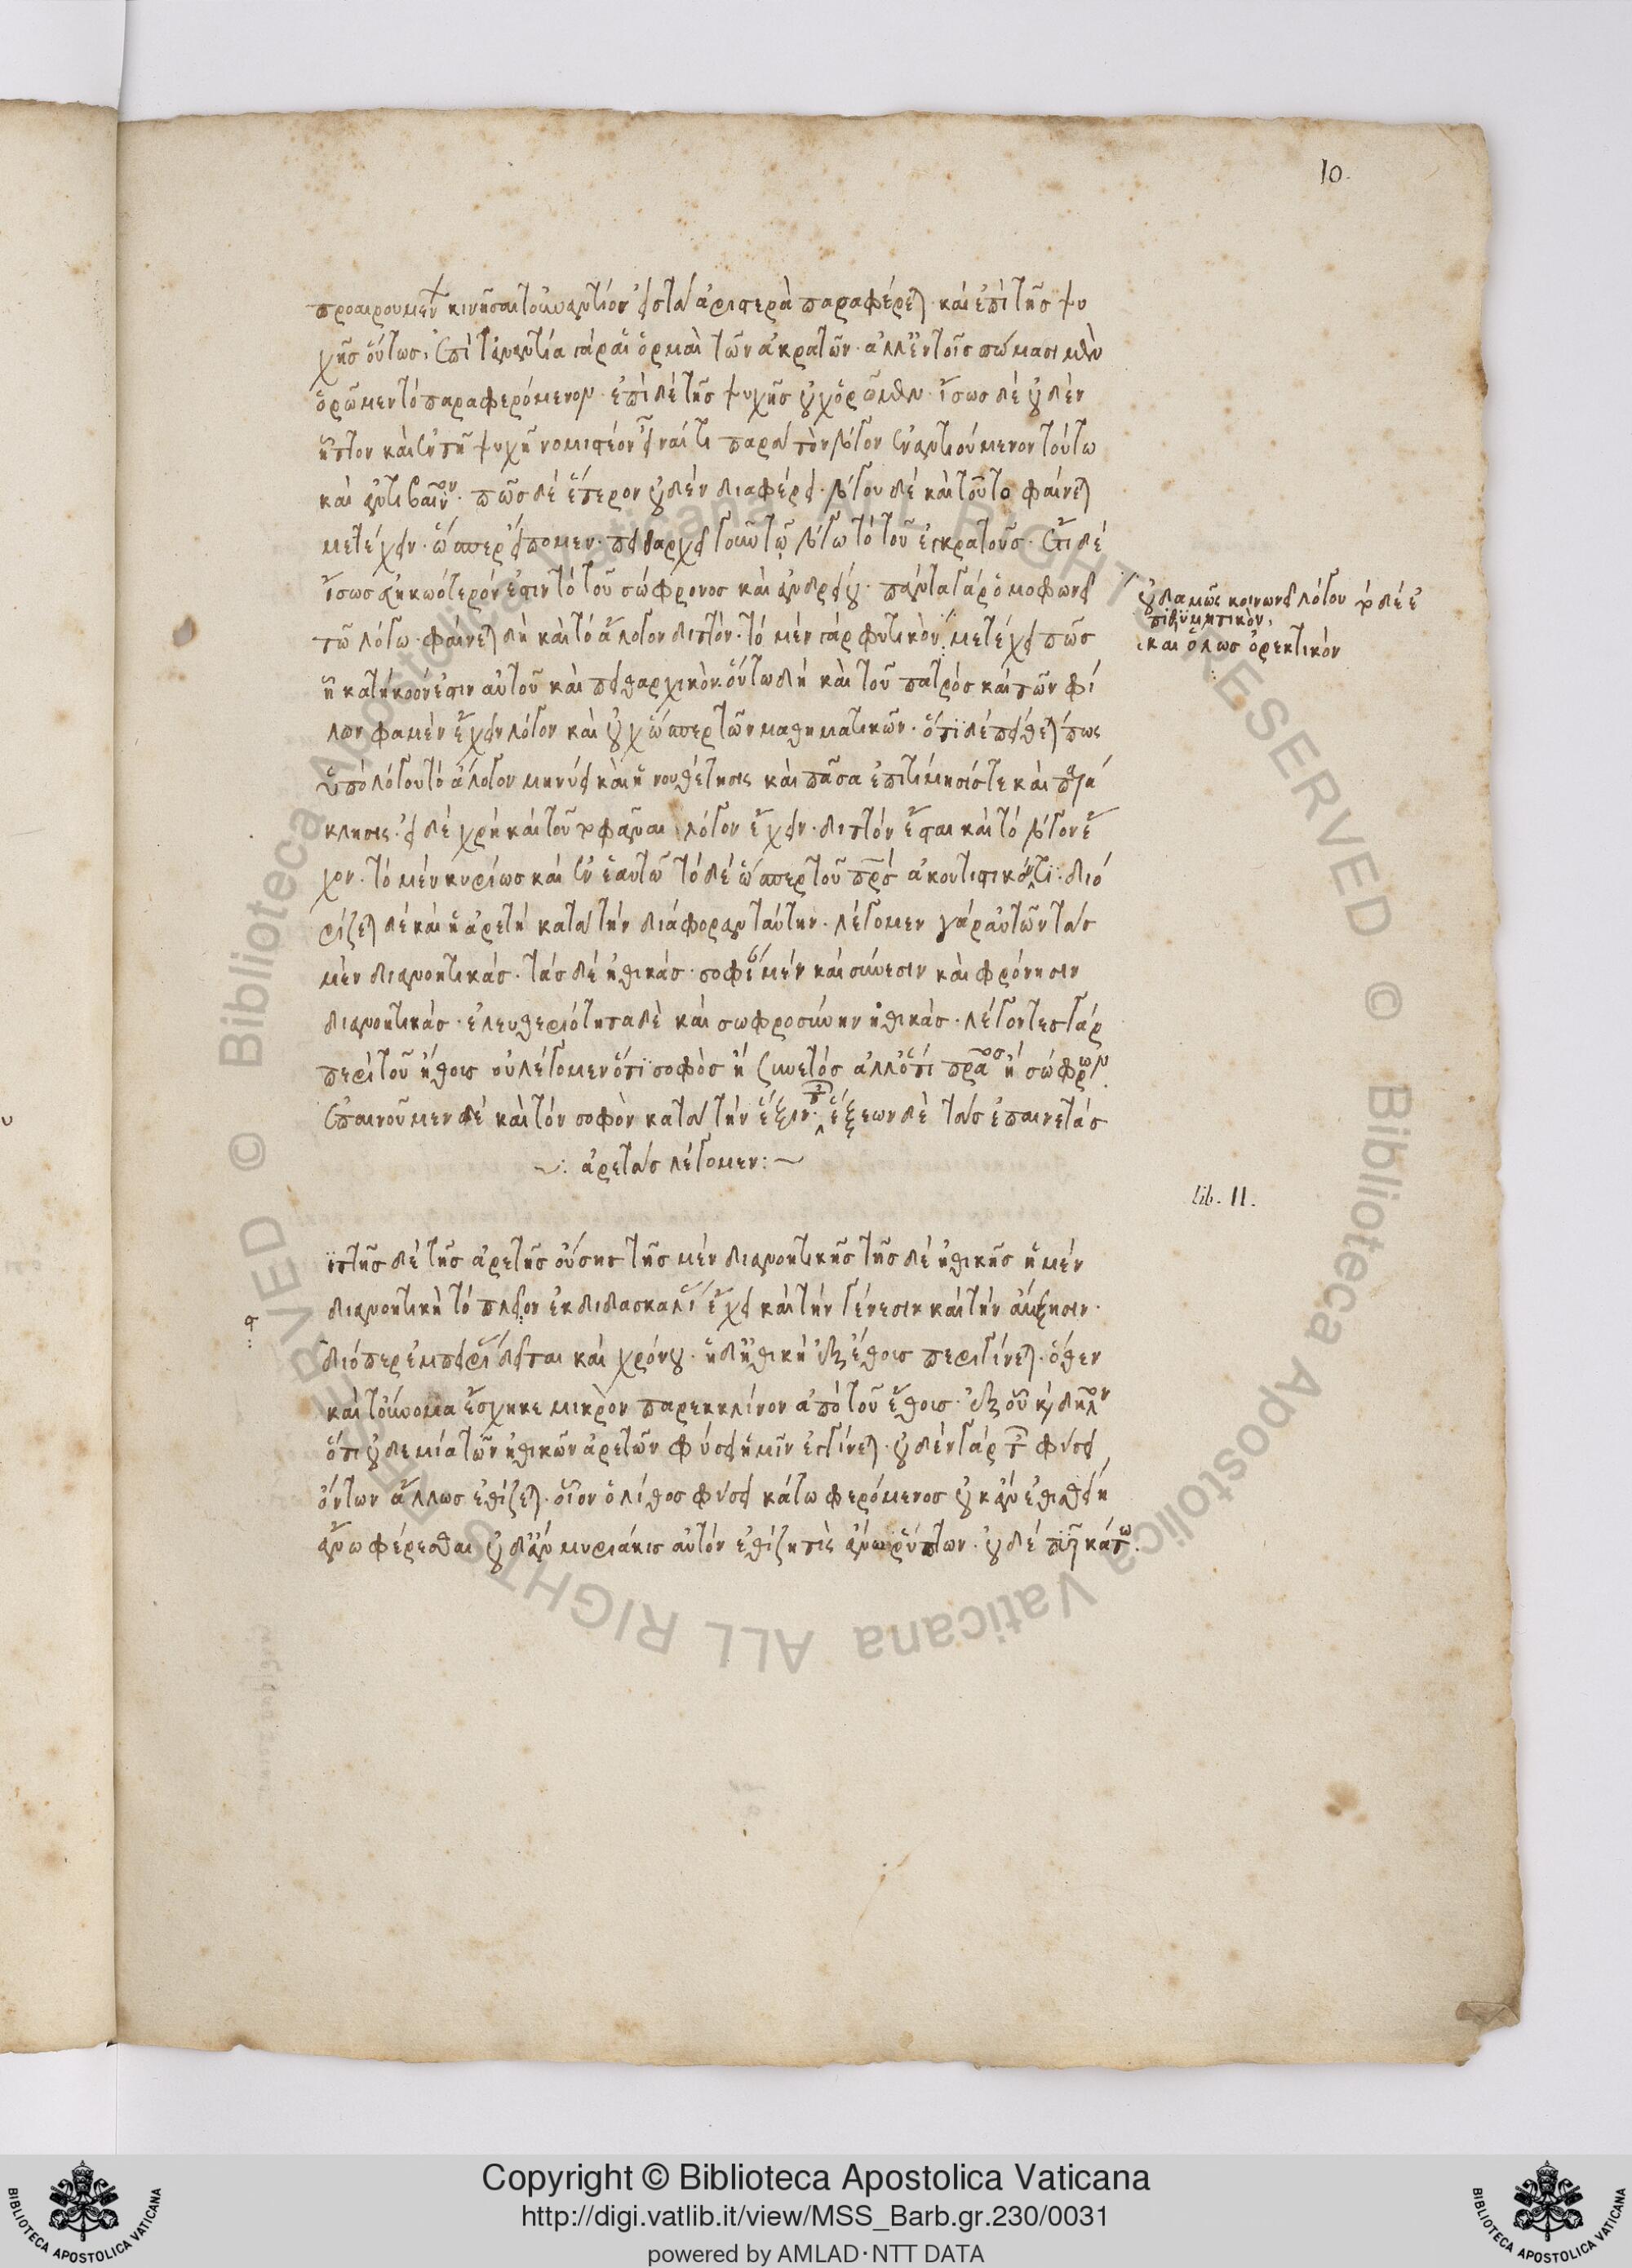 10.
προαιρουμένων κινῆσαι τοὐναντίον εἰς τὰ ἀριστερὰ παραφέρεται· καὶ ἐπὶ τῆς ψυ
χῆς οὕτως· ἐπὶ τἀναντία γὰρ αἱ ὁρμαὶ τῶν ἀκρατῶν· ἀλλ' ἐν τοῖς σώμασι μὲν
ὁρῶμεν τὸ παραφερόμενον· ἐπὶ δὲ τῆς ψυχῆς οὐχ ὁρῶμεν· ἴσως δὲ οὐδὲν
ἧττον καὶ ἐν τῇ ψυχῇ νομιστέον εἶναί τι παρὰ τὸν λόγον ἐναντιούμενον τούτω
καὶ ἀντιβαῖνον· πῶς δὲ ἕτερον οὐδὲν διαφέρει· λόγου δὲ καὶ τοῦτο φαίνεται
μετέχειν· ὥσπερ εἴπομεν· πειθαρχεῖ γοῦν τῷ λόγω τὸ τοῦ ἐγκρατοῦς· ἔτι δὲ
ἴσως εὐηκοώτερόν ἐστιν τὸ τοῦ σώφρονος καὶ ἀνδρείου· πάντα γὰρ ὁμοφωνεῖ
τῶ λόγω· φαίνεται δὴ καὶ τὸ ἄλογον διττόν· τὸ μὲν γὰρ φυτικὸν μετέχει πῶς
οὐδαμῶς κοινωνεῖ λόγου τὸ δὲ ἐ
πιθυμητικὸν,
καὶ ὅλως ὀρεκτικὸν
ἧ κατήκοόν ἐστιν αὐτοῦ καὶ πειθαρχικὸν οὕτω δὴ καὶ τοῦ πατρὸς καὶ τῶν φί
λων φαμὲν ἔχειν λόγον καὶ οὐχ ὥσπερ τῶν μαθηματικῶν· ὅτι δὲ πείθεταί πως
ὑπὸ λόγου τὸ ἄλογον μηνύει καὶ ἡ νουθέτησις καὶ πᾶσα ἐπιτίμησίς τε καὶ παρά
κλησις· εἰ δὲ χρὴ καὶ τοῦτο φάναι λόγον ἔχειν· διττὸν ἔσται καὶ τὸ λόγον ἔ
χον· τὸ μὲν κυρίως καὶ ἐν ἑαυτῶ τὸ δὲ ὥσπερ τοῦ πρς ἀκουστικόν τι· διο
ρίζεται δὲ καὶ ἡ ἀρετὴ κατὰ τὴν διάφοραν ταύτην· λέγομεν γὰρ αὐτῶν τὰς
μὲν διανοητικάς· τὰς δὲ ἠθικάς· σοφίαν μὲν καὶ σύνεσιν καὶ φρόνησιν
διανοητικάς· ἐλευθεριότητα δὲ καὶ σωφροσύνην ἠθικάς· λέγοντες γὰρ
περὶ τοῦ ἤθους οὐ λέγομεν ὅτι σοφὸς ἢ συνετὸς ἀλλ' ὅτι πρᾶος ἢ σώφρων
ἐπαινοῦμεν δὲ καὶ τὸν σοφὸν κατὰ τὴν ἕξιν· τῶν ἕξεων δὲ τὰς ἐπαινετὰς
~: ἀρετὰς λέγομεν:~
lib. II.
ιττῆς δὲ τῆς ἀρετῆς οὔσης τῆς μὲν διανοητικῆς τῆς δὲ ἠθικῆς ἡ μὲν
διανοητικὴ τὸ πλεῖον ἐκ διδασκαλίας ἔχει καὶ τὴν γένεσιν καὶ τὴν αὔξησιν·
διόπερ ἐμπειρίας δεῖται καὶ χρόνου· ἡ δ' ἠθικὴ ἐξ ἔθους περιγίνεται· ὅθεν
καὶ τοὔνομα ἔσχηκε μικρὸν παρεκκλίνον ἀπὸ τοῦ ἔθους· ἐξ οὗ καὶ δῆλον
ὅτι οὐδεμία τῶν ἠθικῶν ἀρετῶν φύσει ἡμῖν ἐγγίνεται· οὐδὲν γὰρ τῶν φύσει
ὄντων ἄλλως ἐθίζεται· οἷον ὁ λίθος φύσει κάτω φερόμενος οὐκ ἂν ἐθισθείη
ἄνω φέρεσθαι οὐδ' ἂν μυριάκις αὐτὸν ἐθίζη τὶς ἄνω ῥίπτων· οὐδὲ τὸ πῦρ κάτω.
Copyright © Biblioteca Apostolica Vaticana
http://digi.vatlib.it/view/MSS_Barb.gr.230/0031
powered by AMLAD·NTT DATA
BIBLIOTECA APOSTOLICA VATICANA
BIBLIOTECA APOSTOLICA VATICANA
© Biblioteca Apostolica Vaticana ALL RIGHTS RESERVED © Biblioteca Apostolica Vaticana ALL RIGHTS RESERVED